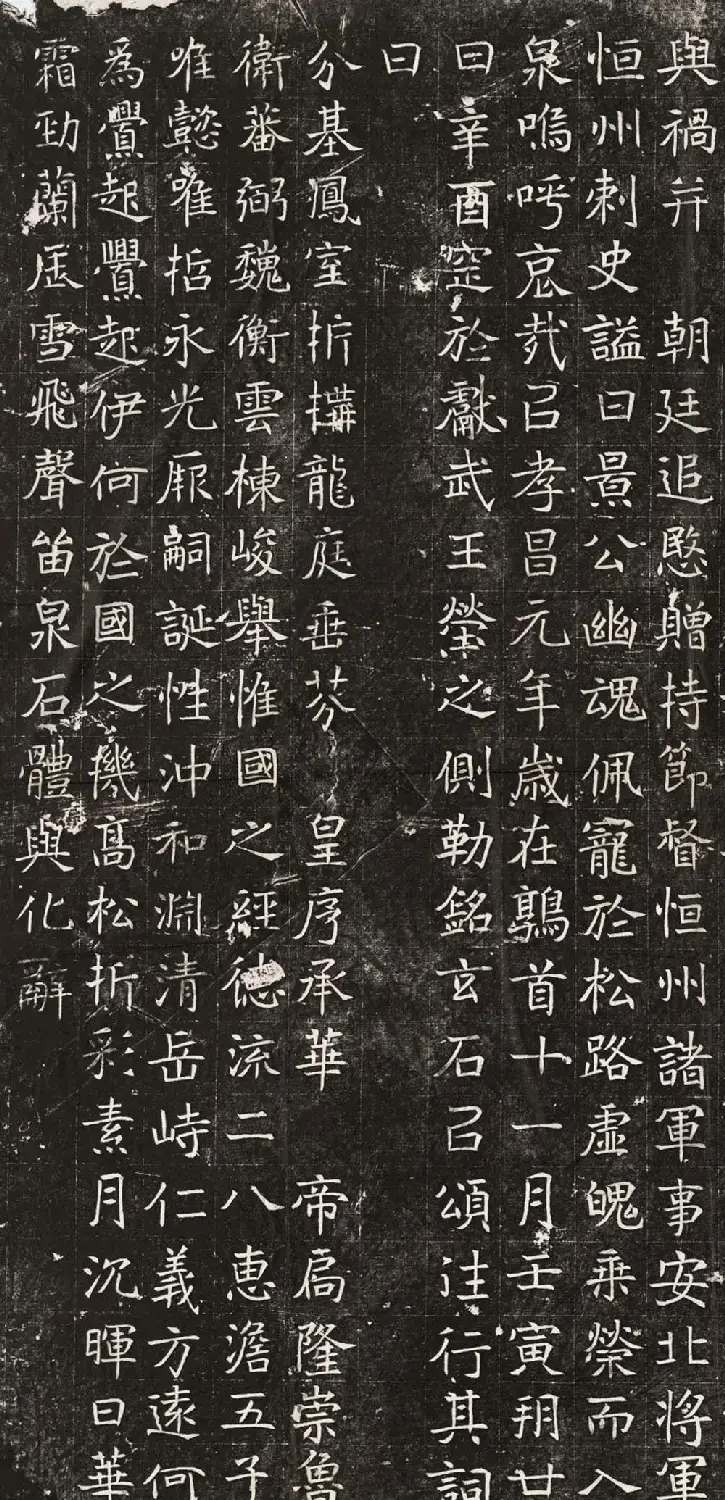 與禍并 朝廷追愍贈持節督恒州諸軍事安北將軍
恒州刺史謚曰景公幽魂佩寵於松路虛魄乗榮而入
泉嗚呼哀㦲㠯孝昌元年歲在鶉首十一月壬寅朔廿
日辛酉窆於獻武王塋之側勒銘玄石㠯頌洼行其詞
曰
分基鳳室折搆龍庭垂芬 皇序承華 帝扃隆崇魯
衛蕃弼魏衡雲棟峻舉惟國之經德流二八惠澹五子
唯懿唯哲永光厥嗣誕性沖和淵清岳峙仁義方遠何
為舋起舋起伊何於國之機高松折彩素月沉暉日華
霜勁蘭㞐雪飛聲畄泉石體與化辭